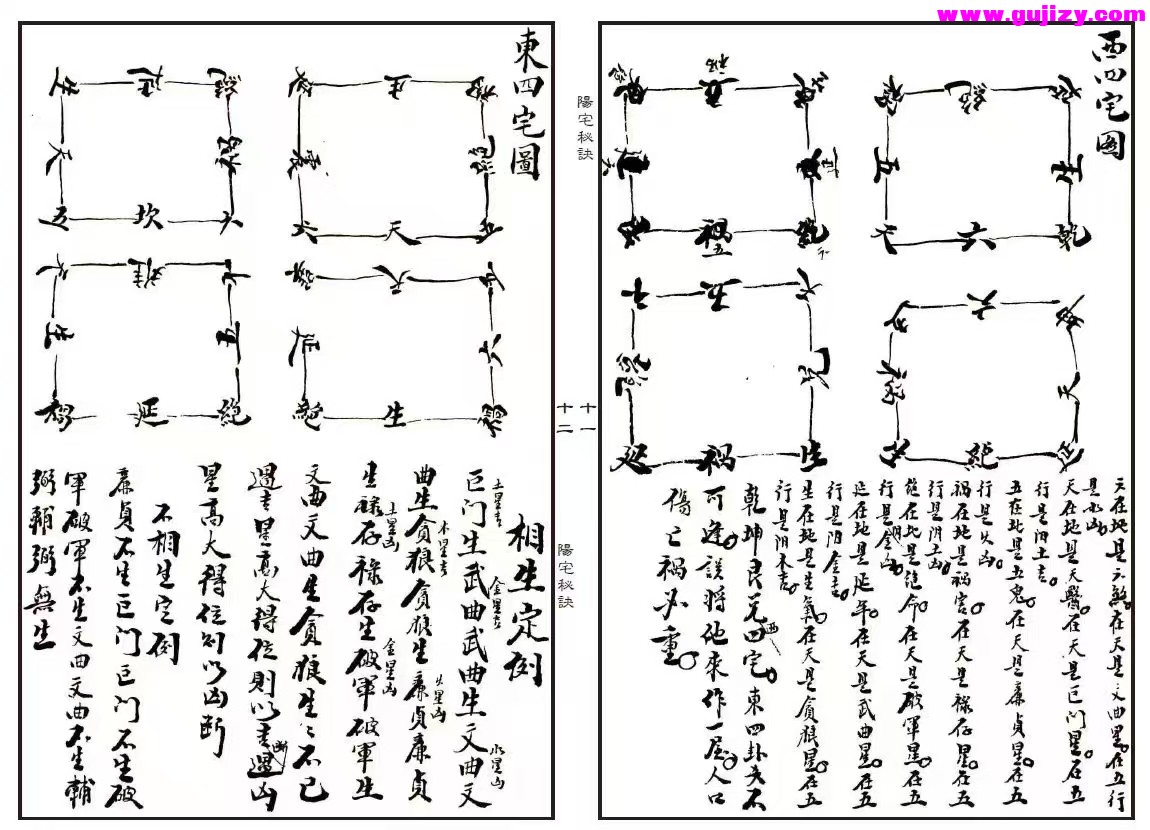 www.gujizy.com
西四宅圖
六在地是六煞在天是文曲星在五行
是水凶
天在地是天醫在天是巨门星在五
行是阳土吉
五在地是五鬼在天是廉贞星在五
行是火凶
祸在地是祸害在天是禄存星在五
行是阴土凶
绝在地是绝命在天是破军星在五
行是阴金凶
延在地是延年在天是武曲星在五
行是阳金吉
生在地是生氣在天是貪狼星在五
行是阳木吉
乾坤艮兑西四宅東四卦爻不
可逢误將他來作一屋人口
傷亡禍必重
陽宅秘訣
十一
十二
陽宅秘訣
東四宅圖
絕
延
生
天
五
坎
六
生
天
六
離
生
祸
延
絕
延
絕
生
乾
六
五
祸
五
延
祸
生
天
相生定例
土星吉
金星吉
水星凶
巨门生武曲武曲生文曲文
木星吉
火星凶
曲生貪狼貪狼生廉貞廉貞
土星凶
金星凶
生禄存禄存生破軍破軍生
文曲文曲生貪狼生々不已
遇吉星高大得位則以吉断遇凶
星高大得位则以凶断
不相生定例
廉貞不生巨门巨门不生破
軍破軍不生文曲文曲不生輔
弼輔弼無生